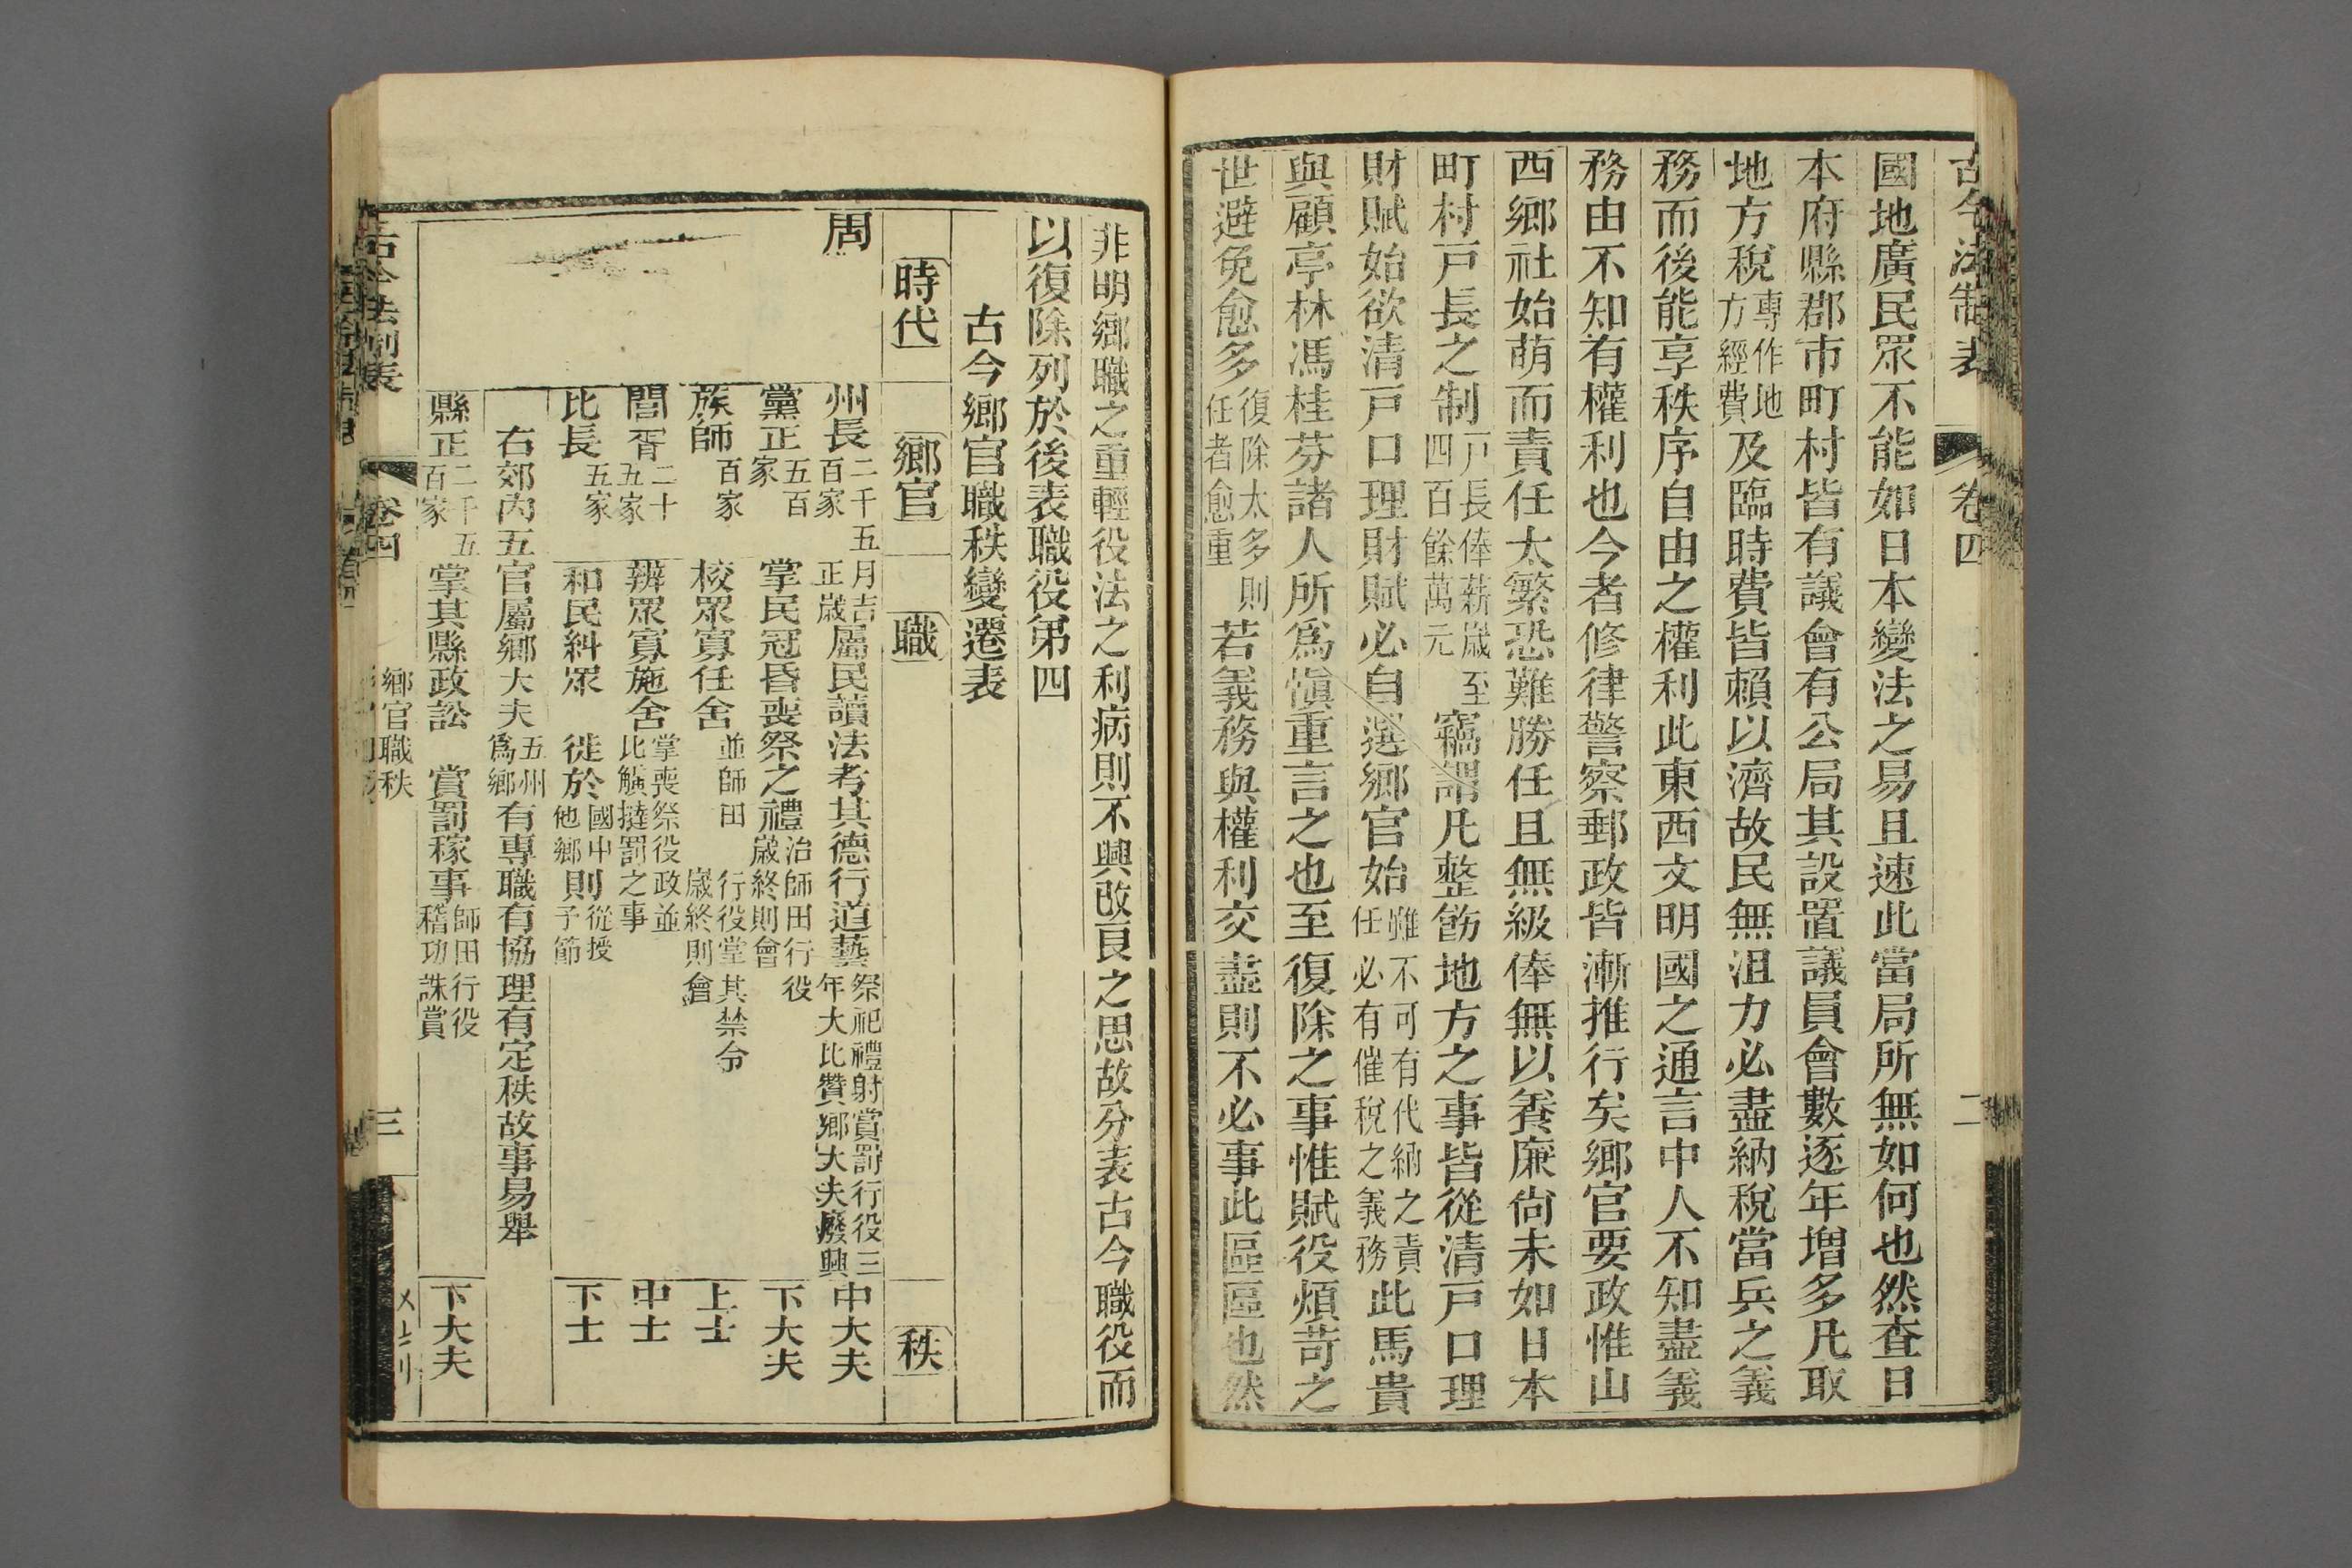 古今法制表 卷四 二
國地廣民眾不能如日本變法之易且速此當局所無如何也然查日
本府縣郡市町村皆有議會有公局其設置議員會數逐年增多凡取
地方稅專作地方經費及臨時費皆賴以濟故民無沮力必盡納稅當兵之義
務而後能享秩序自由之權利此東西文明國之通言中人不知盡義
務由不知有權利也今者修律警察郵政皆漸推行矣鄉官要政惟山
西鄉社始萌而責任太繁恐難勝任且無級俸無以養廉尙未如日本
町村戸長之制戸長俸薪歲至四百餘萬元竊謂凡整飭地方之事皆從清戸口理
財賦始欲清戸口理財賦必自選鄉官始雖不可有代納之責任必有催稅之義務此馬貴
與顧亭林馮桂芬諸人所爲愼重言之也至復除之事惟賦役煩苛之
世避免愈多復除太多則任者愈重若義務與權利交盡則不必事此區區也然
非明鄉職之重輕役法之利病則不興改良之思故分表古今職役而
以復除列於後表職役第四
古今鄉官職秩變遷表
時代 鄉官 職 秩
周 州長二千五百家 月吉正歲屬民讀法考其德行道藝祭祀禮射賞罰行役三年大比贊鄉大夫廢興 中大夫
黨正五百家 掌民冠昏喪祭之禮治師田行役歲終則會 下大夫
族師百家 校眾寡任舍並師田行役掌其禁令歲終則會 上士
閭胥二十五家 辨眾寡施舍掌喪祭役政並比觵撻罰之事 中士
比長五家 和民糾眾 徙於國中他鄉則從授予節 下士
右郊內五官屬鄉大夫五州爲鄉有專職有協理有定秩故事易舉
縣正二千五百家 掌其縣政訟 賞罰稼事師田行役稽功誅賞 下大夫
古今法制表 卷四 鄉官職秩 三